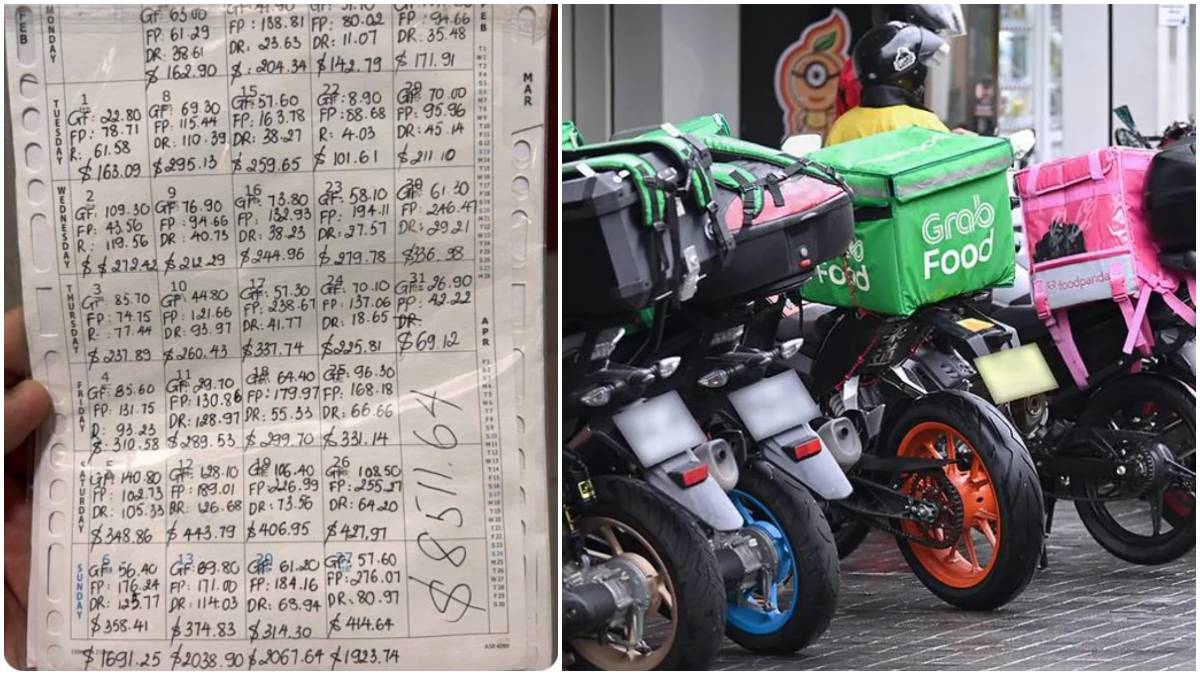 FEB
MONDAY
GF: 63.00
FP: 61.29
DR: 38.61
$ 162.90
FP: 138.81
DR: 23.63
$: 204.34
FP: 80.02
DR: 11.07
$ 142.79
FP: 94.66
DR: 35.48
$ 171.91
TUESDAY
1
GF: 22.80
FP: 78.71
R: 61.58
$ 163.09
8
GF: 69.30
FP: 115.44
DR: 110.39
$ 295.13
15
GF: 57.60
FP: 163.78
DR: 38.27
$ 259.65
22
GF: 8.90
FP: 88.68
R: 4.03
$ 101.61
29
GF: 70.00
FP: 95.96
DR: 45.14
$ 211.10
WEDNESDAY
2
GF: 109.30
FP: 43.56
R: 119.56
$ $ 272.42
9
GF: 76.90
FP: 94.66
DR: 40.73
$ 212.29
16
GF: 73.80
FP: 132.93
DR: 38.23
$ 244.96
23
GF: 58.10
FP: 194.11
DR: 27.57
$ 279.78
30
GF: 61.30
FP: 246.47
DR: 29.21
$ 336.98
THURSDAY
3
GF: 85.70
FP: 74.75
R: 77.44
$ 237.89
10
GF: 44.80
FP: 121.66
DR: 93.97
$ 260.43
17
GF: 57.30
FP: 238.67
DR: 41.77
$ 337.74
24
GF: 70.10
FP: 137.06
DR: 18.65
$ 225.81
31
GF: 26.90
FP: 42.22
DR:
$ 69.12
FRIDAY
4
GF: 85.60
FP: 131.75
D: 93.23
$ 310.58
11
GF: 29.70
FP: 130.86
DR: 128.97
$ 289.53
18
GF: 64.40
FP: 179.97
DR: 55.33
$ 299.70
25
GF: 96.30
FP: 168.18
DR: 66.66
$ 331.14
SATURDAY
5
GF: 140.80
FP: 102.73
DR: 105.33
$ 348.86
12
GF: 128.10
FP: 189.01
DR: 126.68
$ 443.79
19
GF: 106.40
FP: 226.99
DR: 73.56
$ 406.95
26
GF: 108.50
FP: 255.27
DR: 64.20
$ 427.97
SUNDAY
6
GF: 56.40
FP: 176.24
DR: 125.77
$ 358.41
13
GF: 89.80
FP: 171.00
DR: 114.03
$ 374.83
20
GF: 61.20
FP: 184.16
DR: 68.94
$ 314.30
27
GF: 57.60
FP: 276.07
DR: 80.97
$ 414.64
$ 1691.25 $ 2038.90 $ 2067.64 $ 1923.74
$ 8511.64
FEB
MAR
APR
Grab
Food
Food
foodpanda